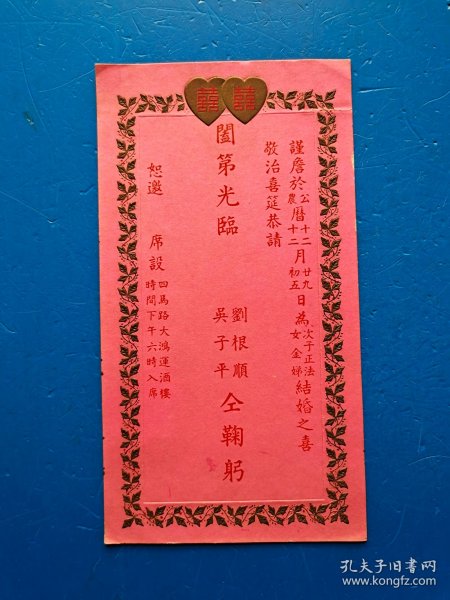 囍 囍
謹詹於公農曆十二十二月廿九初五日為次子正法女金娣結婚之喜
敬治喜筵恭請
闔第光臨
劉根順
吳子平
仝鞠躬
恕邀
席設
四馬路大鴻運酒樓
時間下午六時入席
孔夫子旧书网
www.kongfz.com